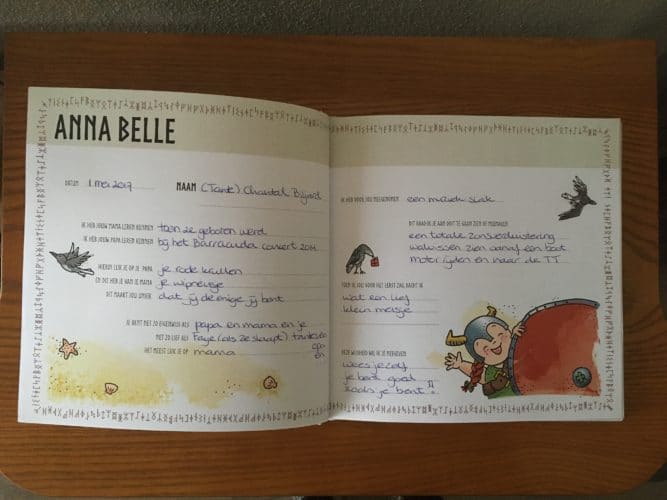 ANNA BELLE
DATUM 1 mei 2017 NAAM (Tante) Chantal
IK HEB JOUW MAMA LEREN KENNEN toen ze geboren werd
IK HEB JOUW PAPA LEREN KENNEN bij het Barracuda concert 2014
HIERIN LIJK JE OP JE PAPA je rode krullen
EN DIT HEB JE VAN JE MAMA je wipneusje
DIT MAAKT JOU UNIEK dat jij de enige jij bent
JE BENT NET ZO EIGENWIJS ALS papa en mama en je
NET ZO LIEF ALS Faye (als ze slaapt) tantes en
opa
HET MEEST LIJK JE OP mama en
IK HEB VOOR JOU MEEGENOMEN een muziek
DIT RAAD IK JE AAN OOIT TE GAAN ZIEN OF MEEMAKEN
een totale zonsverduistering
walvissen zien vanaf een boot
motor rijden en naar de TT
TOEN IK JOU VOOR HET EERST ZAG, DACHT IK
wat een lief
klein meisje
DEZE WIJSHEID WIL IK JE MEEGEVEN
wees jezelf
je bent goed
zoals je bent!!